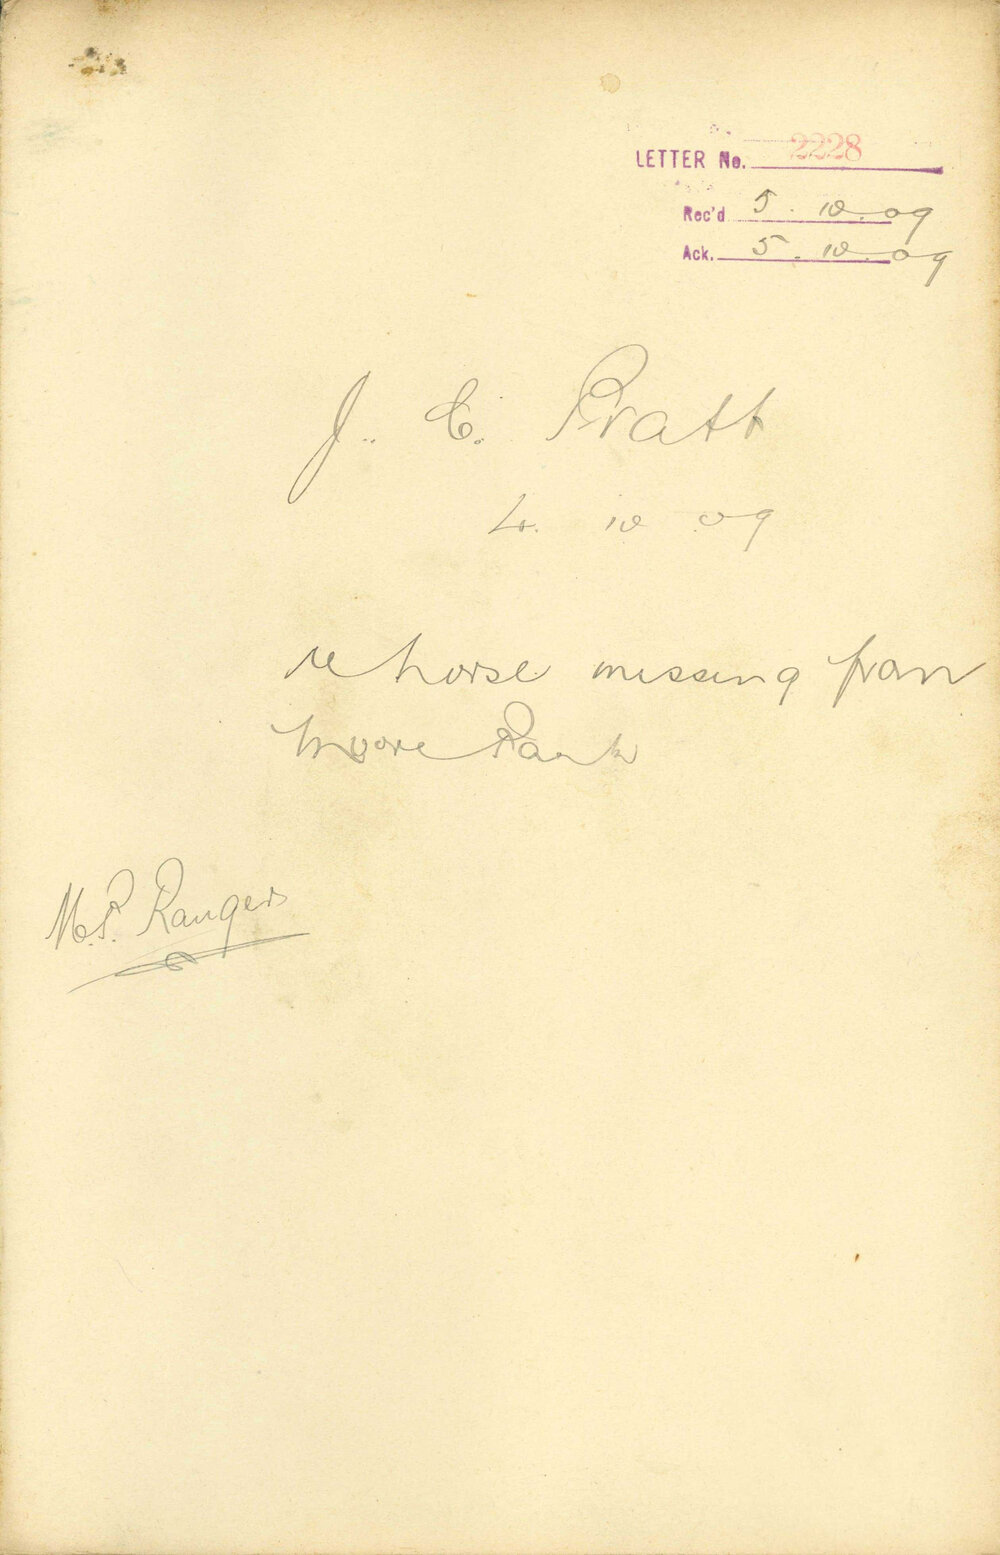 LETTER No. 2228
Rec'd 5. 10. 09
Ack. 5. 10. 09
J. C. Pratt
4. 10 09
re horse missing from
Moore Park
M.P. Rangers